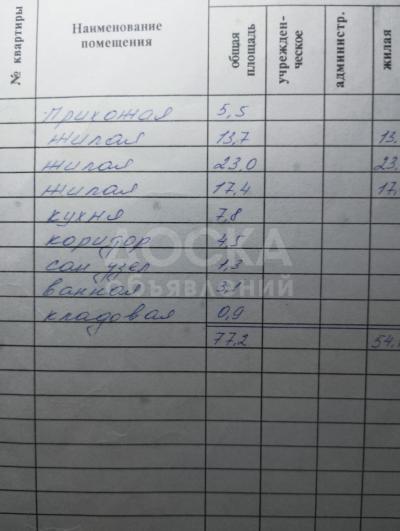 № квартиры Наименование помещения общая площадь учрежден-ческое администр. жилая
прихожая 5,5
жилая 13,7 13.
жилая 23,0 23.
жилая 17,4 17,
кухня 7,8
коридор 4,5
сан узел 1,3
ванная 3,1
кладовая 0,9
77,2 54.
ДОСКА
ОБЪЯВЛЕНИЙ